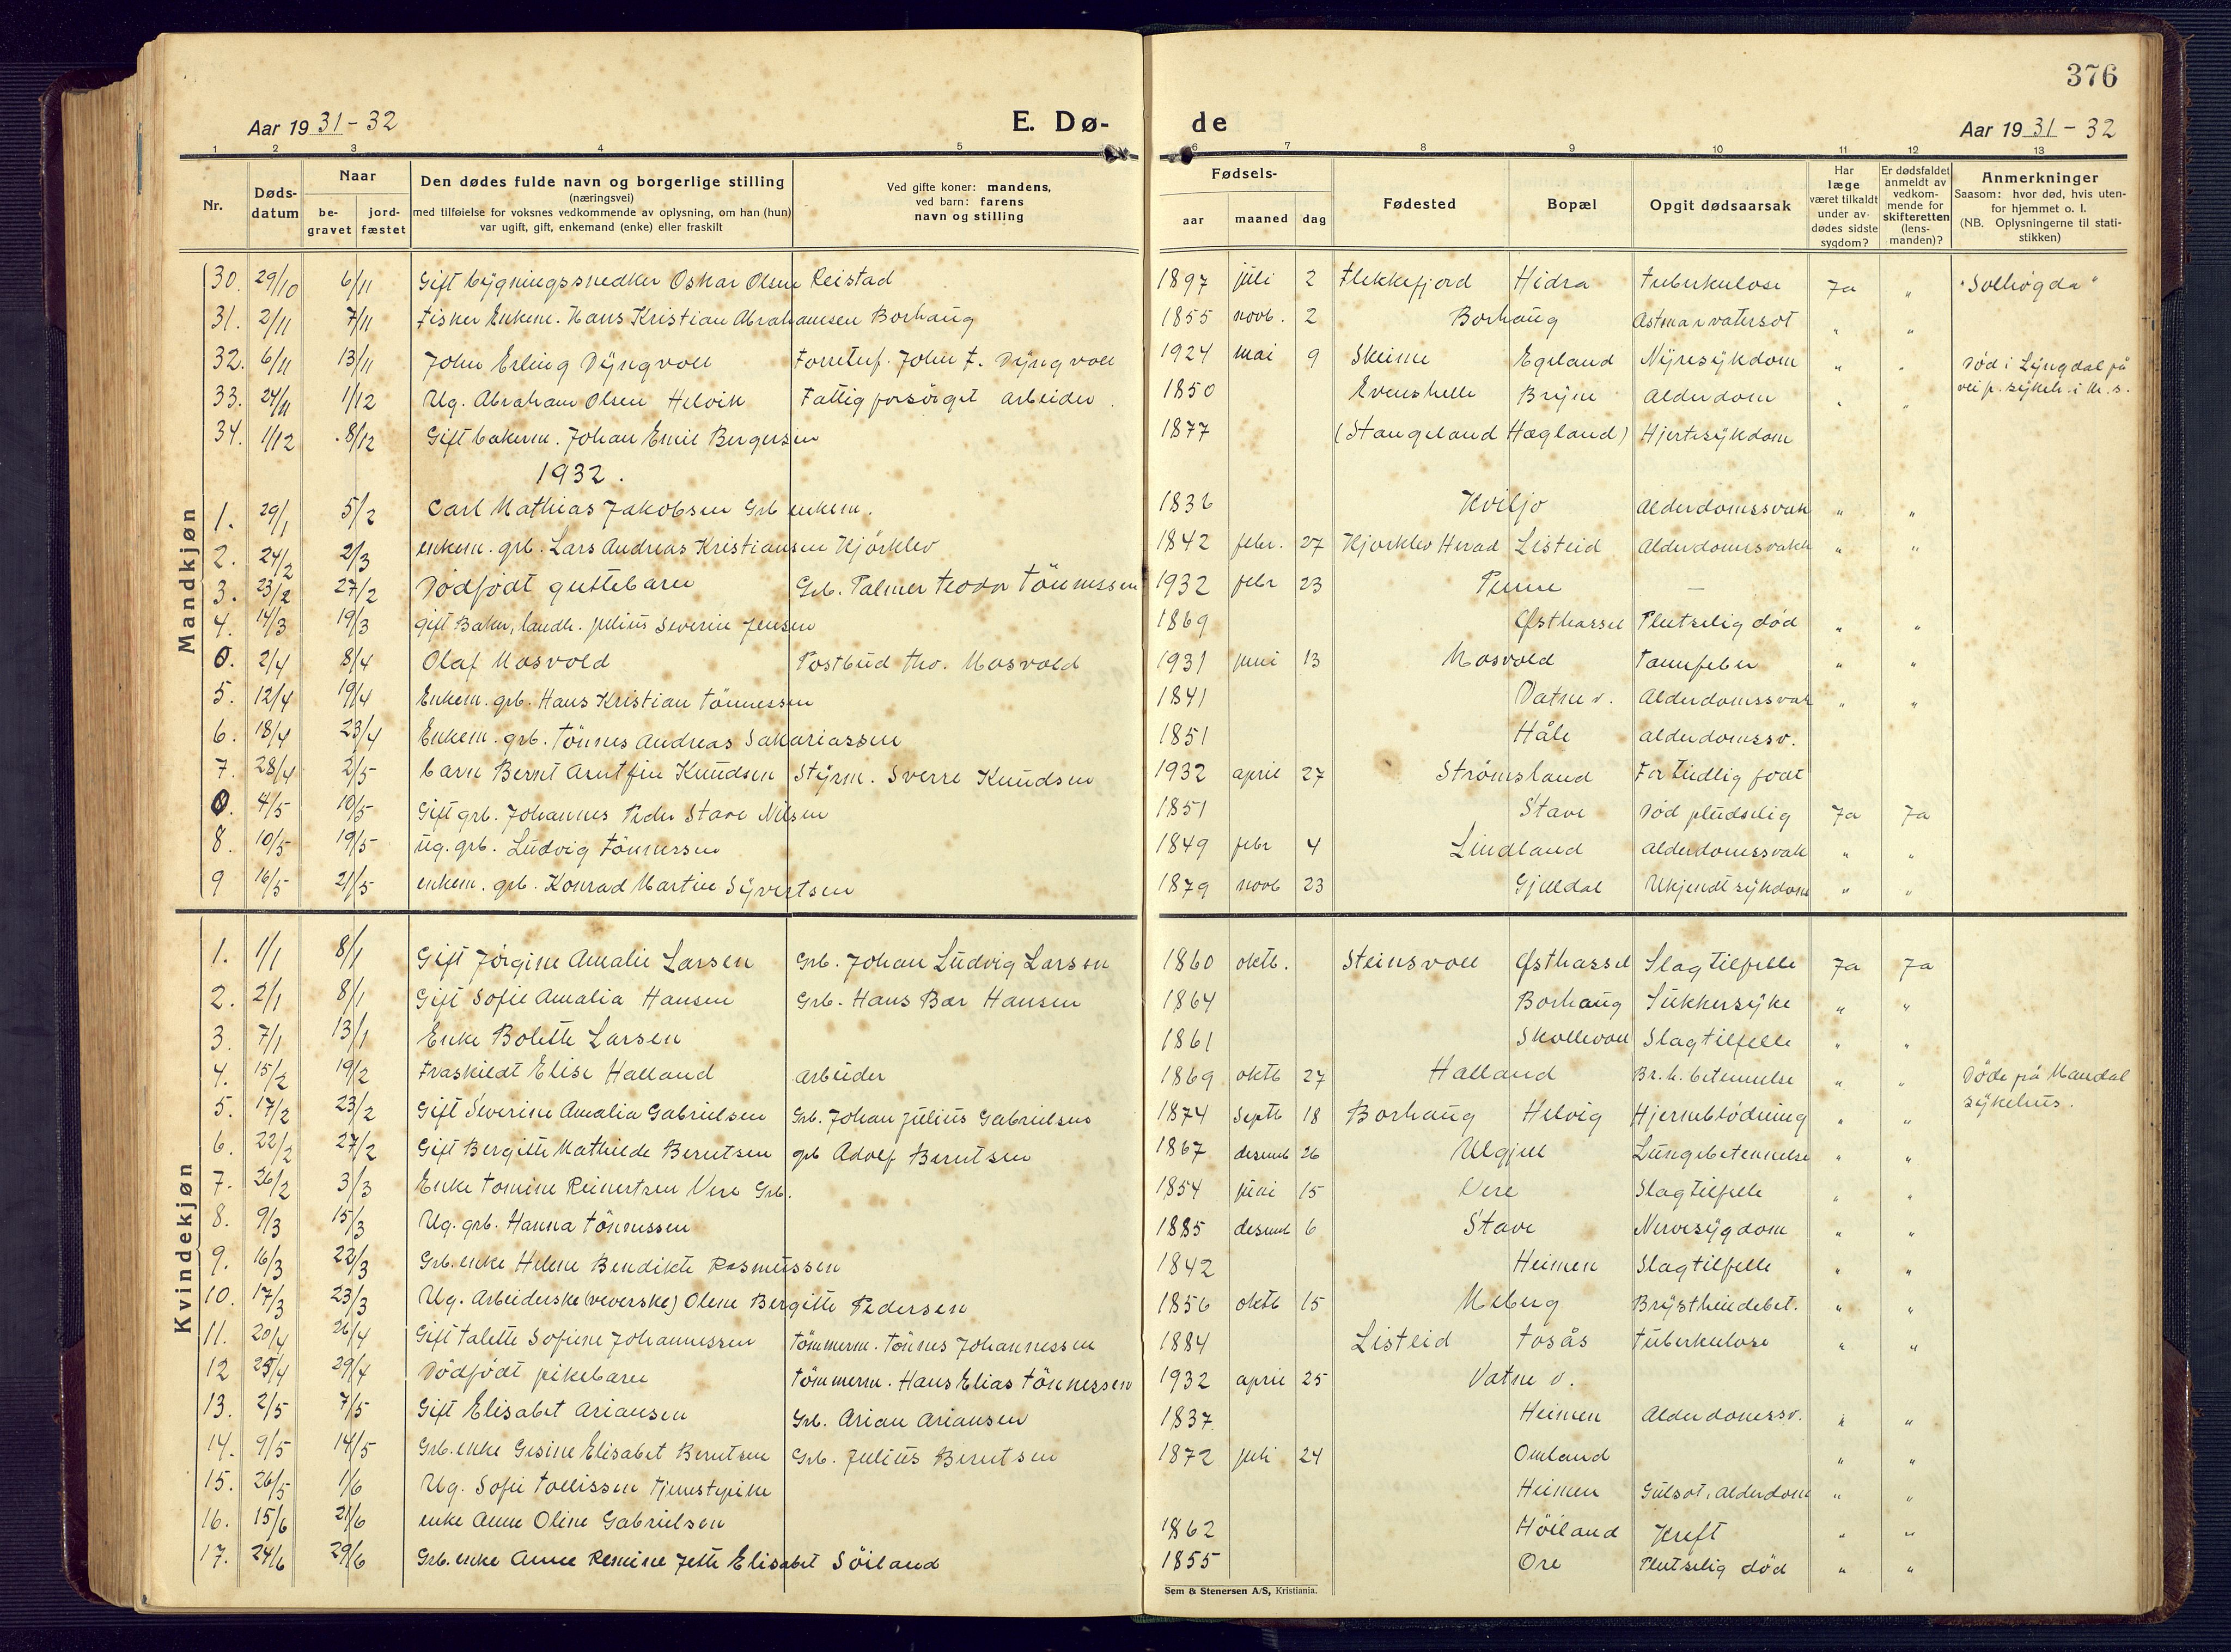 376
Aar 19 31-32 E. Dø- de Aar 19 31-32
1 2 3 4 5 6 7 8 9 10 11 12 13
Nr. Døds-datum Naar be-gravet jord-fæstet Den dødes fulde navn og borgerlige stilling (næringsvei) med tilføielse for voksnes vedkommende av oplysning, om han (hun) var ugift, gift, enkemand (enke) eller fraskilt Ved gifte koner: mandens, ved barn: farens navn og stilling Fødsels- aar maaned dag Fødested Bopæl Opgit dødsaarsak Har læge været tilkaldt under avdødes sidste sygdom? Er dødsfaldet anmeldt av vedkommende for skifteretten (lensmanden)? Anmerkninger Saasom: hvor død, hvis utenfor hjemmet o. l. (NB. Oplysningerne til statistikken)
Mandkjøn
30. 29/10 6/11 Gift bygningssnedker Oskar Olsen Reistad 1897 juli 2 Flekkefjord Hidra Tuberkulose Ja " "Solhøgda"
31. 2/11 7/11 Fisker Enkem. Hans Kristian Abrahamsen Borhaug 1855 novb. 2 Borhaug Astma vatersot " "
32. 6/11 13/11 John Erling Dyngvoll Forretnf. John F. Dyngvoll 1924 mai 9 Skeime Egeland Nyresykdom " " Død i Lyngdal på
vei p. sykeh. i M. s.
33. 24/11 1/12 Ug. Abraham Olsen Helvik Fattigforsørget arbeider. 1850 Evenshelle Bryne Alderdom " "
34. 1/12 8/12 Gift bakerm. Johan Emil Bergersen 1877 (Stangeland Hægland) Hjertesykdom
1932.
1. 29/1 5/2 Carl Mathias Jakobsen Grb enkem. 1836 Kviljo Alderdomssvak " "
2. 24/2 2/3 enkem. grb. Lars Andreas Kristiansen Kjørklev 1842 febr. 27 Kjørklev Herad Listeid Alderdomssvakh " "
3. 23/2 27/2 Dødfødt guttebarn Grb. Palmer Teodor Tønnessen 1932 febr 23 Penne —
4. 14/3 19/3 gift Baker, landh. Julius Severin Jensen 1869 Østhassel Plutselig død " "
0. 2/4 8/4 Olaf Mosvold Postbud Tho. Mosvold 1931 juni 13 Mosvold Tannfeber " "
5. 12/4 19/4 Enkem. grb. Hans Kristian Tønnessen 1841 Vatne v. Alderdomssvak " "
6. 18/4 23/4 Enkem. grb. Tønnes Andreas Sakariassen 1851 Håle alderdomssv.
7. 28/4 2/5 barn Bernt Arntfin Knudsen Styrm. Sverre Knudsen 1932 april 27 Strømsland For tidlig født
0. 4/5 10/5 Gift grb. Johannes Peder Stave Nilsen 1851 Stave Død pludselig Ja Ja
8. 10/5 19/5 ug. grb. Ludvig Tønnessen 1849 febr 4 Lindland alderdomssvak " "
9 16/5 21/5 enkem. grb. Konrad Martin Syvertsen 1879 novb 23 Gjelldal Ukjendt sykdom " "
Kvindekjøn
1. 1/1 8/1 Gift Jørgine Amalie Larsen Grb. Johan Ludvig Larsen 1860 oktb. Steinsvoll Østhassel Slagtilfelle Ja Ja
2. 2/1 8/1 Gift Sofie Amalia Hansen Grb. Hans Bær Hansen 1864 Borhaug Sukkersyke " "
3. 7/1 13/1 Enke Bolette Larsen 1861 Skollevoll Slagtilfelle " "
4. 15/2 19/2 Fraskildt Elise Halland arbeider 1869 oktb 27 Halland Br.h. betennelse " " Døde på Mandal
sykehus.
5. 17/2 23/2 Gift Severine Amalia Gabrielsen Grb. Johan Julius Gabrielsen 1874 Septb 18 Borhaug Helvig Hjerneblødning " "
6. 22/2 27/2 Gift Bergitte Mathilde Berntsen grb Adolf Berntsen 1867 desemb 26 Ulgjell Lungebetennelse " "
7. 26/2 3/3 Enke Tomine Reinertsen Vere Grb. 1854 juni 15 Vere Slagtilfelle " "
8. 9/3 15/3 Ug. grb. Hanna Tønnessen 1885 desemb 6 Stave Nervesygdom " "
9. 16/3 22/3 Grb. enke Helene Bendikte Rasmussen 1842 Heimen Slagtilfelle " "
10. 17/3 23/3 Ug. Arbeiderske (veverske) Olene Bergitte Pedersen 1856 oktb 15 Meberg Brysthindebet. " "
11. 20/4 26/4 Gift Talette Sofiene Johannessen Tømmerm. Tønnes Johannessen 1884 Listeid Tosås Tuberkulose " "
12 25/4 29/4 Dødfødt pikebarn Tømmerm. Hans Elias Tønnessen 1932 april 25 Vatne v.
13. 2/5 7/5 Gift Elisabet Ariansen Grb. Arian Ariansen 1837 Heimen Alderdomssv. " "
14. 9/5 14/5 Grb. enke Gesine Elisabet Berntsen Grb. Julius Berntsen 1872 juli 24 Omland " "
15. 26/5 1/6 Ug. Sofie Tollissen Tjenestpike Heimen Gulsot, Alderdom " "
16. 15/6 21/6 enke Anne Oline Gabrielsen 1862 Høiland Kreft " "
17. 24/6 29/6 Grb. enke Anne Remine Jette Elisabet Søiland 1855 Ore Plutselig død " "
Sem & Stenersen A/S, Kristiania.